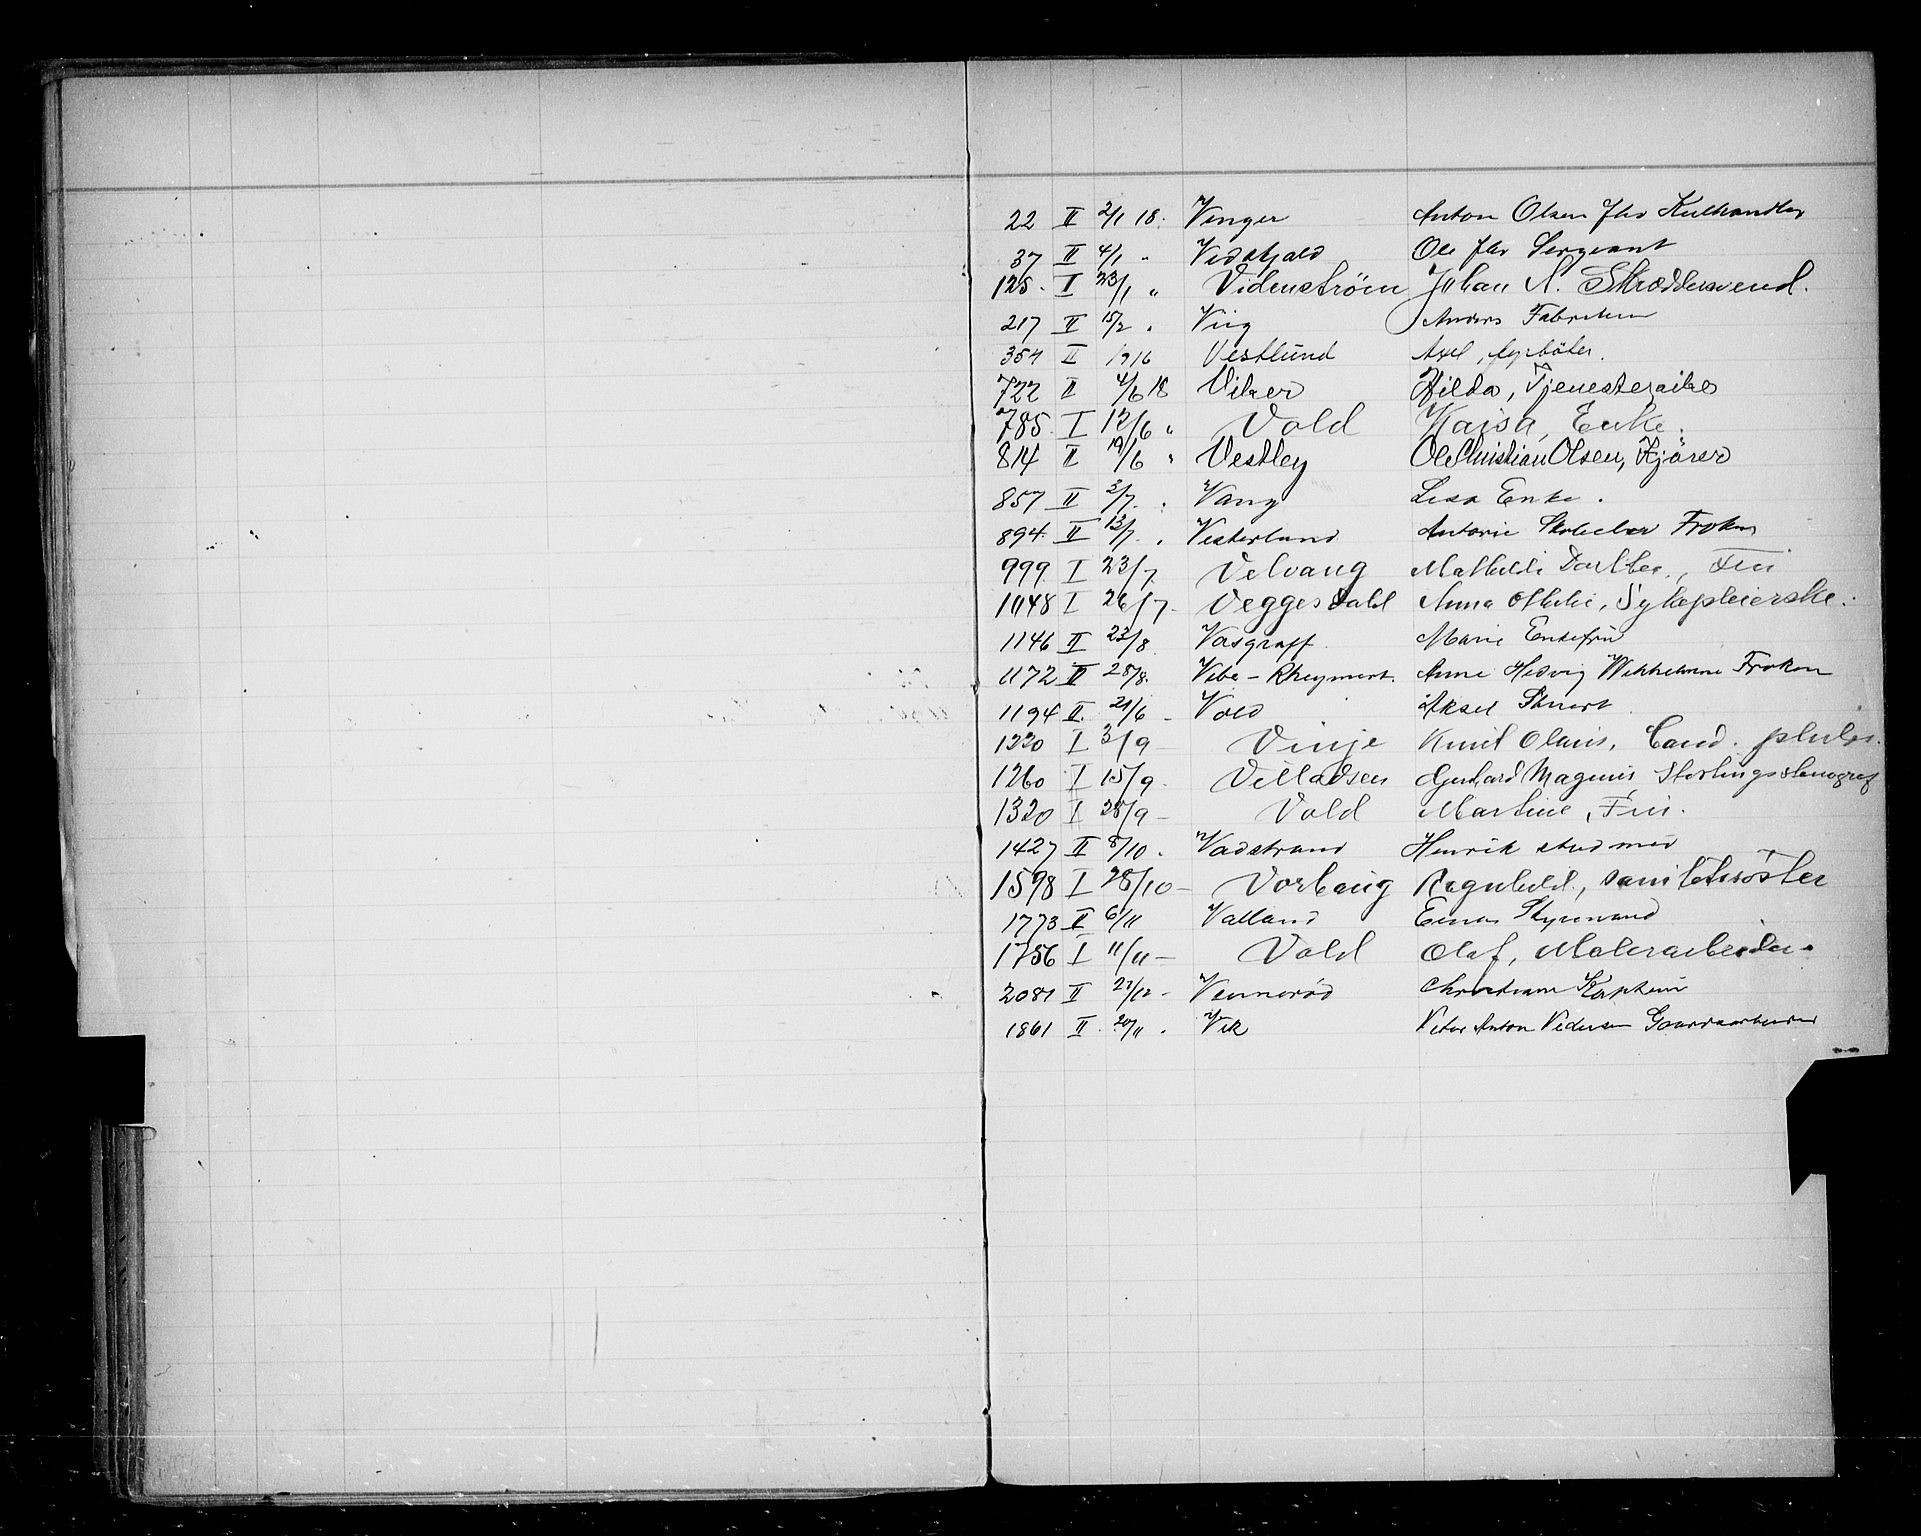 22 II 2/1 18. Vinger Anton Olsen fhv Kulhandler
37 II 4/1 " Vidskjold Ole fhv Sergeant
125. I 23/1 " Videnström Johan N. Skræddersvend.
217 II 15/2 " Viig Anders
354 II 1916 Vestlund Axel, fyrböter.
722 II 4/6 18 Viker Hilda, Tjenestepike
785. I 12/6 " Vold Kajsa, Enke.
814 II 19/6 " Vestley Ole Christian Olsen, Kjörer
857 II 3/7. " Vang Lisa Enke.
894. II 13/7. " Vesterlund Antonie Fröken
999. I 23/7. Velvang Mathilde Dorthea, Fru
1048 I 26/7- Veggesdahl Anna Othilie, Sykepleierske.
1146 II 23/8. Vasgraff. Marie Enkefru
1172 II 28/8. Vibe- Anne Hedvig Wilhelmine Fröken
1194 II. 21/6 - Vold Aksel
1220 I 3/9 - Vinje Knut Olaus, Cand. philos.
1260 I 15/9. Villadsen Gerhard Magnus Stortingsstenograf
1320 I 28/9 - Vold Martine, Fru.
1427 II 8/10. Vadstrand Henrik stud med
1598 I 28/10 - Vorbaug Ragnhild, sanitetssöster
1773 II 6/11 Valland Einar Styrmand
1756 I 11/11 - Vold Olaf, Malerarbeider.
2081 II 27/12 - Vennerød Christian Kaptein
1861 II. 20/11. Vik Anton Pedersen Gaardsarbeider